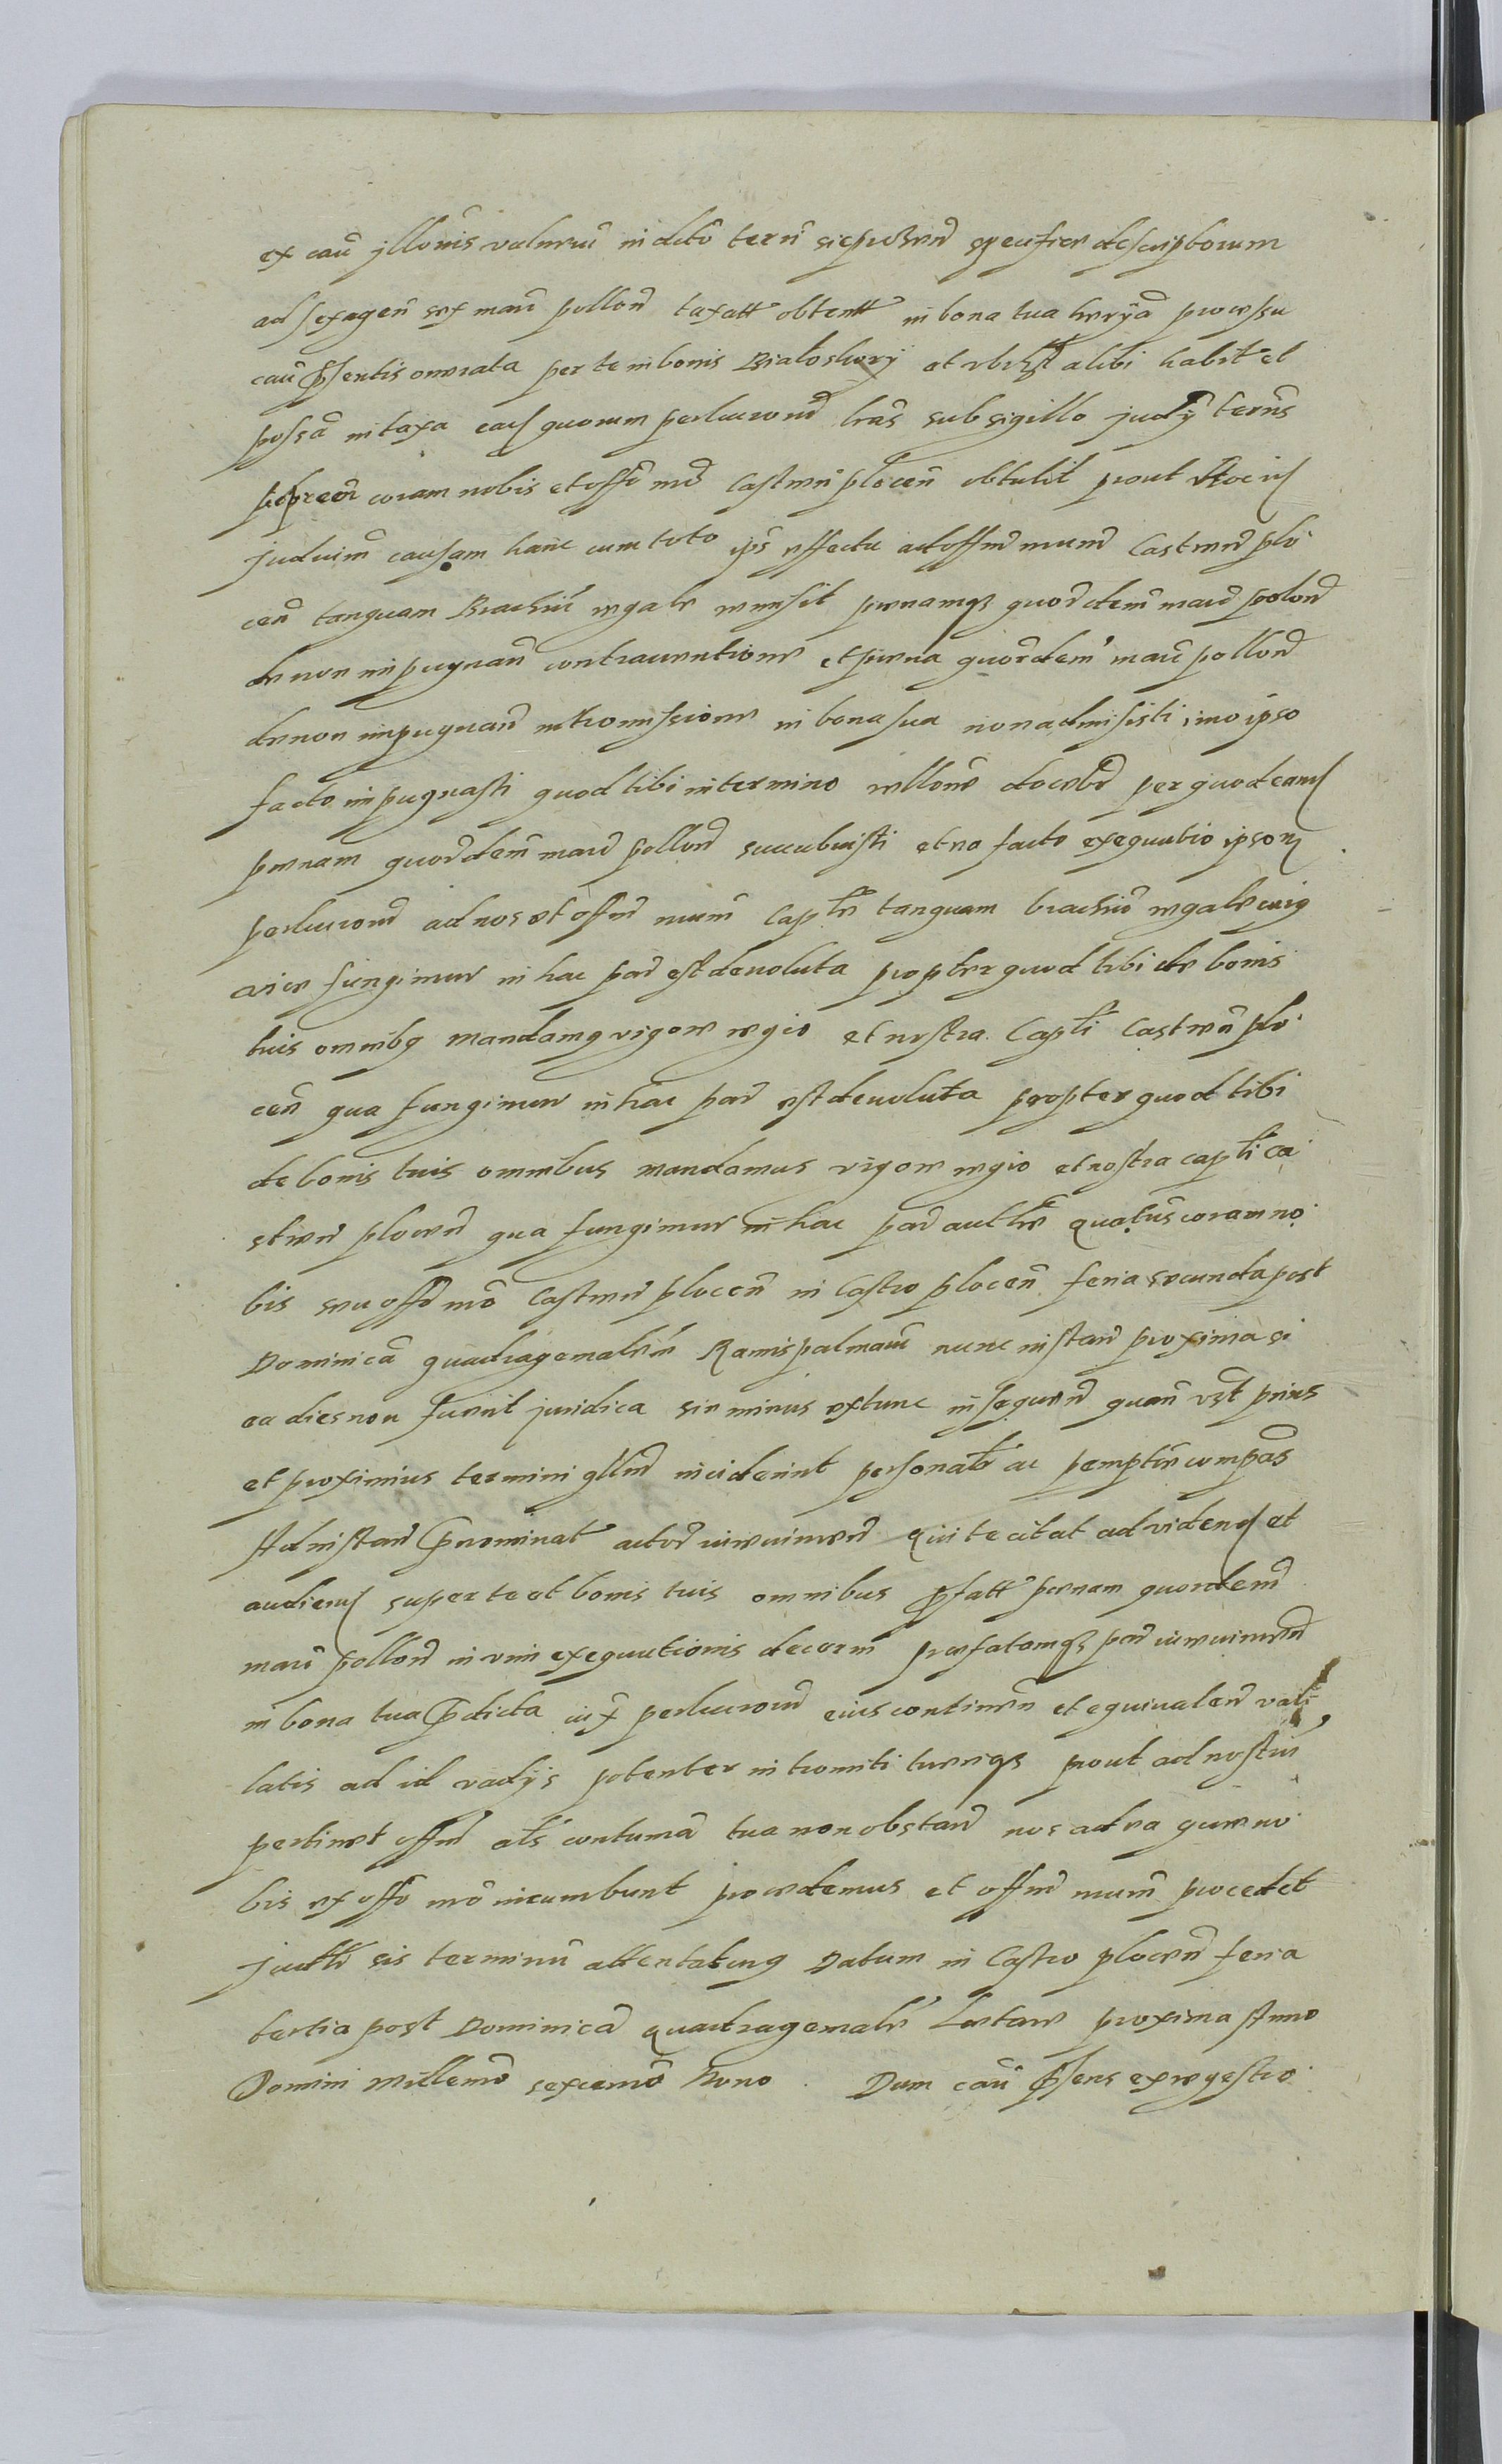 ex cau illonis vulnerū in dcto terri sieprcen specifice descriptorum
ad sexagen sex marc pollon taxatt obtent in bona tua hereda processu
cau psentis onerata per te in bonis Bialoskory et vbivst alibi habit et
possa in taxa eas quorum perlucrand lras sub sigillo judy terris
sieprcen coram nobis et offo nro Castren plocen obtulit prout
Judiciu causam hanc cum toto ips effectu ad offm nrum Castren plo
cen tanquam Brachiu regale remisit penamqз quordecim marc polon
de non impugnan contrauentione et pena quordecim marc pollon
de non impugnan intromissione in bona sua non admisisti imo ipso
facto impugnasti quod tibi in termino docebit per quod eand
penam quordecim marc pollon succubuisti et ra facto exequutio ipsorz
perlucrand ad nos et offm nrum Captle tanquam brachiu regale cuiq
vice fungimur in hac par est deuoluta propter quod tibi de bonis
tuis omnibq mandamq vigore regio et nostra Captli Castren plo
cen qua fungimur in hac par est deuoluta propter quod tibi
de bonis tuis omnibus mandamus vigore regio et nostra captli ca
stren plocen qua fungimur in hac par autte quatus coram no
bis seu offo nro Castren plocen in Castro plocen feria secunda post
Dominica quadragemalem Ramispalmaru nunc instan proxima si
ea dies non fuerit juridica sin minus extunc in sequen quam vst prius
et proximius termini gllm inciderint personalr ac pemptie compas
Ad instan pnominat actor inreuimen qui te citat ad videnq et
audienq super te et bonis tuis omnibus pfatt penam quordecim
marc pollon in vim exequutionis decerni prefatamqз par inreuimen
in bona tua pdicta iux perlucrand eius continen et equiualen vall
latis ad id vadijs potenter intromiti tueriqз prout ad nostrū
pertinet offm als contuma tua non obstan nos ad ea que no
bis ex offo nro incumbunt procedemus et offm nrum procedet
Juttu sis terminu attentaturq Datum in Castro plocen feria
tertia post Dominica quadragemale Laetare proxima Anno
Domini Millemo sexcemo Nono. Dum cau psens ex regestro